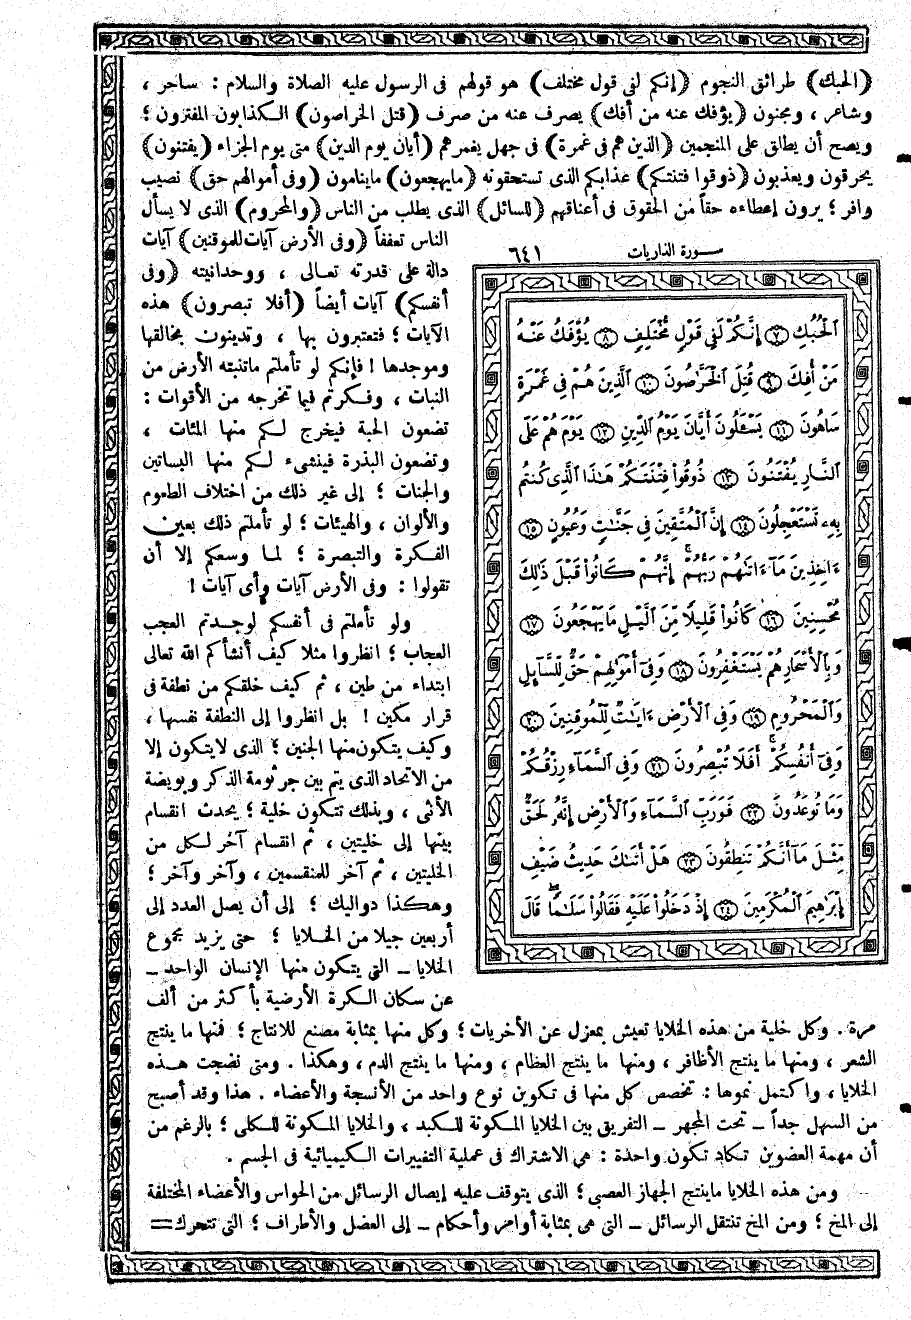 (الحبك) طرائق النجوم (إنكم لفى قول مختلف) هو قولهم فى الرسول عليه الصلاة والسلام : ساحر ،
وشاعر ، ومجنون (يؤفك عنه من أفك) يصرف عنه من صرف (قتل الخراصون) الكذابون المفترون ؛
ويصح أن يطلق على المنجمين (الذين هم فى غمرة) فى جهل يغمرهم (أيان يوم الدين) متى يوم الجزاء (يفتنون)
يحرقون ويعذبون (ذوقوا فتنتكم) عذابكم الذى تستحقونه (مايهجعون) ماينامون (وفى أموالهم حق) نصيب
وافر ؛ يرون إعطاءه حقاً من الحقوق فى أعناقهم (للسائل) الذى يطلب من الناس (والمحروم) الذى لا يسأل
الناس تعففاً (وفى الأرض آيات للموقنين) آيات
دالة على قدرته تعالى ، ووحدانيته (وفى
أنفسكم) آيات أيضاً (أفلا تبصرون) هذه
الآيات ؛ فتعتبرون بها ، وتدينون بمخالقها
وموجدها ! فإنكم لو تأملتم ماتنبته الأرض من
النبات ، وفكرتم فيما تخرجه من الأقوات :
تضعون الحبة فيخرج لكم منها المئات ،
وتضعون البذرة فينشىء لكم منها البساتين
والجنات ؛ إلى غير ذلك من اختلاف الطعوم
والألوان ، والهيئات ؛ لو تأملتم ذلك بعين
الفكرة والتبصرة ؛ لما وسعكم إلا أن
تقولوا : وفى الأرض آيات وأى آيات !
ولو تأملتم فى أنفسكم لوجدتم العجب
العجاب ؛ انظروا مثلا كيف أنشأكم الله تعالى
ابتداء من طين ، ثم كيف خلقكم من نطفة فى
قرار مكين ! بل انظروا إلى النطفة نفسها ،
وكيف يتكون منها الجنين ؛ الذى لايتكون إلا
من الاتحاد الذى يتم بين جرثومة الذكر وبويضة
الأنثى ، وبذلك تتكون خلية ؛ يحدث انقسام
بينها إلى خليتين ، ثم انقسام آخر لكل من
الخليتين ، ثم آخر للمنقسمين ، وآخر وآخر ؛
وهكذا دواليك ؛ إلى أن يصل العدد إلى
أربعين جيلا من الخلايا ؛ حتى يزيد مجموع
الخلايا ــ التى يتكون منها الإنسان الواحد ــ
عن سكان الكرة الأرضية بأكثر من ألف
سورة الذاريات ٦٤١
ٱلْحُبُكِ ٧ إِنَّكُمْ لَفِى قَوْلٍ مُّخْتَلِفٍ ٨ يُؤْفَكُ عَنْهُ
مَنْ أُفِكَ ٩ قُتِلَ ٱلْخَرَّٰصُونَ ١٠ ٱلَّذِينَ هُمْ فِى غَمْرَةٍ
سَاهُونَ ١١ يَسْـَٔلُونَ أَيَّانَ يَوْمُ ٱلدِّينِ ١٢ يَوْمَ هُمْ عَلَى
ٱلنَّارِ يُفْتَنُونَ ١٣ ذُوقُوا۟ فِتْنَتَكُمْ هَٰذَا ٱلَّذِى كُنتُم
بِهِۦ تَسْتَعْجِلُونَ ١٤ إِنَّ ٱلْمُتَّقِينَ فِى جَنَّٰتٍ وَعُيُونٍ ١٥
ءَاخِذِينَ مَآ ءَاتَىٰهُمْ رَبُّهُمْ ۚ إِنَّهُمْ كَانُوا۟ قَبْلَ ذَٰلِكَ
مُحْسِنِينَ ١٦ كَانُوا۟ قَلِيلًا مِّنَ ٱلَّيْلِ مَا يَهْجَعُونَ ١٧
وَبِٱلْأَسْحَارِ هُمْ يَسْتَغْفِرُونَ ١٨ وَفِىٓ أَمْوَٰلِهِمْ حَقٌّ لِّلسَّآئِلِ
وَٱلْمَحْرُومِ ١٩ وَفِى ٱلْأَرْضِ ءَايَٰتٌ لِّلْمُوقِنِينَ ٢٠
وَفِىٓ أَنفُسِكُمْ ۚ أَفَلَا تُبْصِرُونَ ٢١ وَفِى ٱلسَّمَآءِ رِزْقُكُمْ
وَمَا تُوعَدُونَ ٢٢ فَوَرَبِّ ٱلسَّمَآءِ وَٱلْأَرْضِ إِنَّهُۥ لَحَقٌّ
مِّثْلَ مَآ أَنَّكُمْ تَنطِقُونَ ٢٣ هَلْ أَتَىٰكَ حَدِيثُ ضَيْفِ
إِبْرَٰهِيمَ ٱلْمُكْرَمِينَ ٢٤ إِذْ دَخَلُوا۟ عَلَيْهِ فَقَالُوا۟ سَلَٰمًا ۖ قَالَ
مرة . وكل خلية من هذه الخلايا تعيش بمعزل عن الأخريات ؛ وكل منها بمثابة مصنع للانتاج ؛ فمنها ما ينتج
الشعر ، ومنها ما ينتج الأظافر ، ومنها ما ينتج العظام ، ومنها ما ينتج الدم ، وهكذا . ومتى نضجت هذه
الخلايا ، واكتمل نموها : تخصص كل منها فى تكوين نوع واحد من الأنسجة والأعضاء . هذا وقد أصبح
من السهل جداً ــ تحت المجهر ــ التفريق بين الخلايا المكونة للكبد ، والخلايا المكونة للكلى ؛ بالرغم من
أن مهمة العضوين تكاد تكون واحدة : هى الاشتراك فى عملية التغييرات الكيميائية فى الجسم .
ومن هذه الخلايا ماينتج الجهاز العصبى ؛ الذى يتوقف عليه إيصال الرسائل من الحواس والأعضاء المختلفة
إلى المخ ؛ ومن المخ تنتقل الرسائل ــ التى هى بمثابة أوامر وأحكام ــ إلى العضل والأطراف ؛ التى تتحرك =